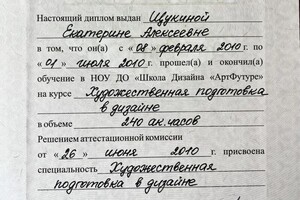 Настоящий диплом выдан Щукиной
Екатерине Алексеевне
в том, что он(а) с «08» февраля 2010 г. по
«01» июля 2010 г. прошел(а) и окончил(а)
обучение в НОУ ДО «Школа Дизайна «АртФутуре»
на курсе Художественная подготовка
в дизайне
в объеме 240 ак. часов
Решением аттестационной комиссии
от «26» июня 2010 г. присвоена
специальность Художественная
подготовка в дизайне